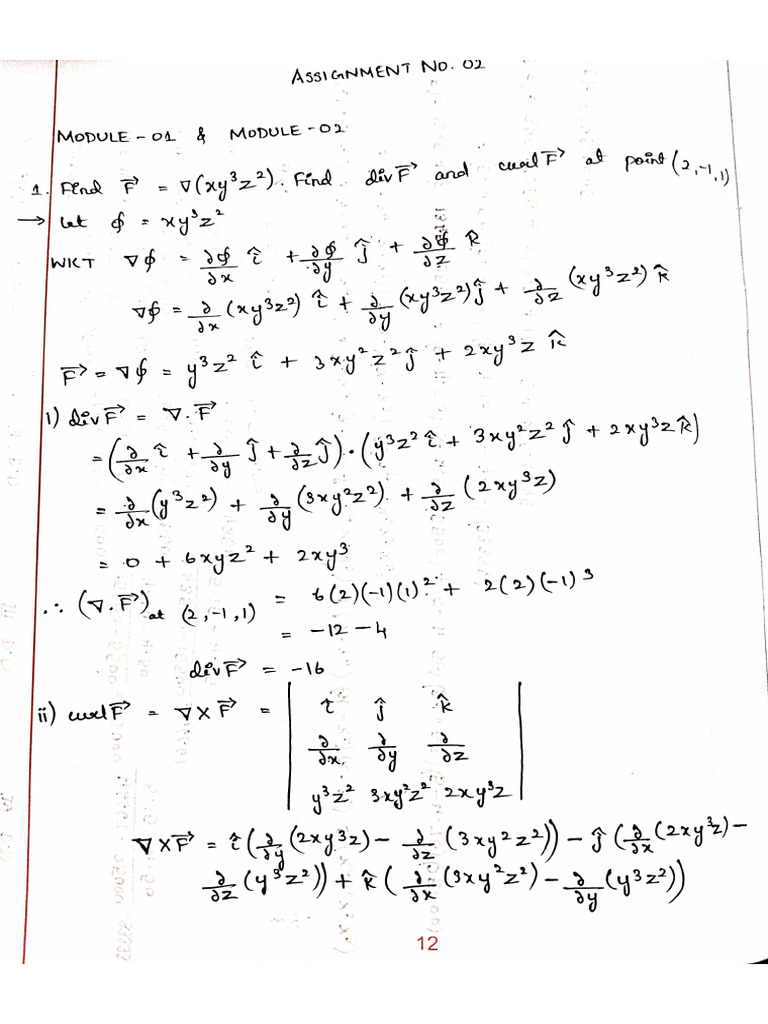 ASSIGNMENT NO. 02
MODULE - 01 & MODULE - 02
1. Find F→ = ∇(xy³z²). Find div F→ and curl F→ at point (2,-1,1)
→ let ϕ = xy³z²
WKT ∇ϕ = ∂ϕ/∂x î + ∂ϕ/∂y ĵ + ∂ϕ/∂z k̂
∇ϕ = ∂/∂x (xy³z²) î + ∂/∂y (xy³z²) ĵ + ∂/∂z (xy³z²) k̂
F→ = ∇ϕ = y³z² î + 3xy²z² ĵ + 2xy³z k̂
i) div F→ = ∇.F→
= (∂/∂x î + ∂/∂y ĵ + ∂/∂z ĵ) · (y³z² î + 3xy²z² ĵ + 2xy³z k̂)
= ∂/∂x (y³z²) + ∂/∂y (3xy²z²) + ∂/∂z (2xy³z)
= 0 + 6xyz² + 2xy³
∴ (∇.F→) at (2,-1,1) = 6(2)(-1)(1)² + 2(2)(-1)³
= -12 - 4
div F→ = -16
ii) curl F→ = ∇ X F→ = | î ĵ k̂ |
∂/∂x ∂/∂y ∂/∂z
y³z² 3xy²z² 2xy³z
∇ X F→ = î (∂/∂y (2xy³z) - ∂/∂z (3xy²z²)) - ĵ (∂/∂x (2xy³z) -
∂/∂z (y³z²)) + k̂ (∂/∂x (3xy²z²) - ∂/∂y (y³z²))
12